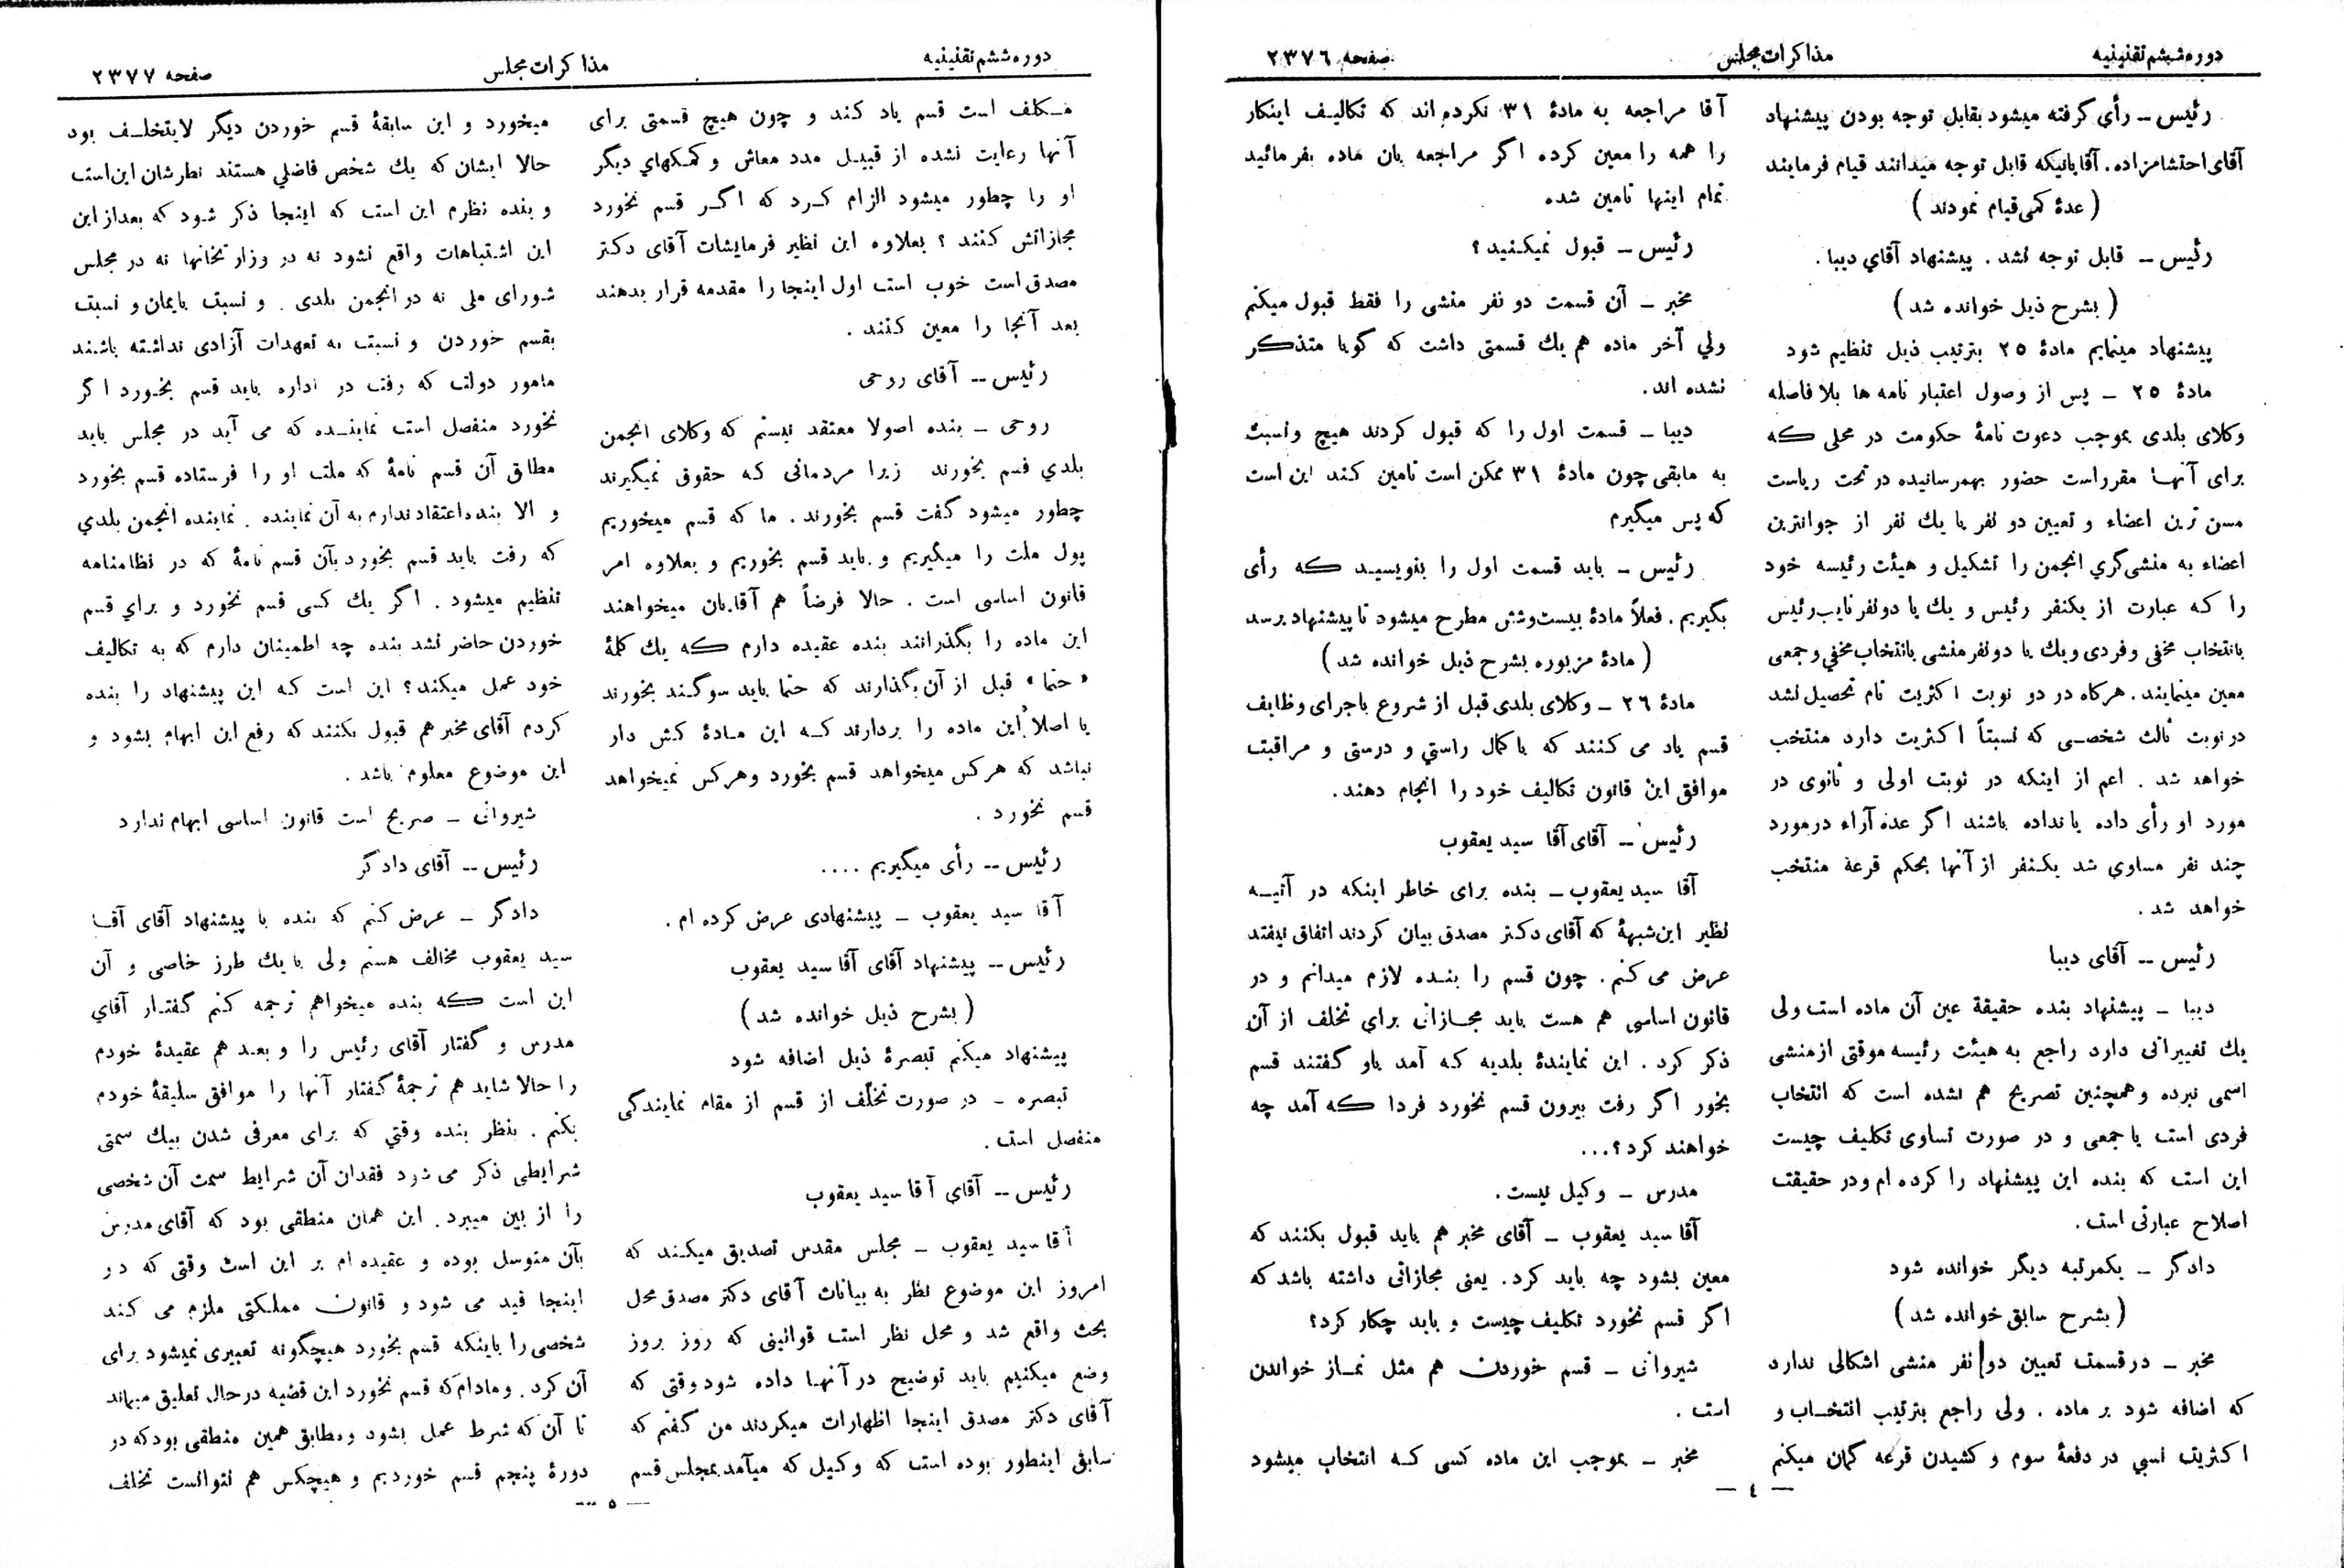 دوره ششم تقنینیه
مذاکرات مجلس
صفحه ۲۳۷۶
رئیس ــ رأی گرفته میشود بقابل توجه بودن پیشنهاد
آقای احتشامزاده. آقایانیکه قابل توجه میدانند قیام فرمایند
( عدهٔ کمی قیام نمودند )
رئیس ــ قابل توجه نشد . پیشنهاد آقاي دیبا .
( بشرح ذیل خوانده شد )
پیشنهاد مینمایم مادهٔ ۲۵ بترتیب ذیل تنظیم شود
مادهٔ ۲۵ ــ پس از وصول اعتبار نامه ها بلا فاصله
وکلای بلدی بموجب دعوت نامهٔ حکومت در محلی که
برای آنها مقرر است حضور بهمرسانیده در تحت ریاست
مسن ترین اعضاء و تعیین دو نفر یا یك نفر از جوانترین
اعضاء به منشی‌گري انجمن را تشکیل و هیئت رئیسه خود
را که عبارت از یکنفر رئیس و یك یا دو نفر نایب رئیس
بانتخاب مخفی و فردی و یك یا دو نفر منشی بانتخاب مخفي و جمعی
معین مینمایند . هرگاه در دو نوبت اکثریت تام تحصیل نشد
در نوبت ثالث شخصی که نسبتاً اکثریت دارد منتخب
خواهد شد . اعم از اینکه در نوبت اولی و ثانوی در
مورد او رأی داده یا نداده باشند اگر عده آراء در مورد
چند نفر مساوي شد یکنفر از آنها بحکم قرعه منتخب
خواهد شد .
رئیس ــ آقای دیبا
دیبا ــ پیشنهاد بنده حقیقة عین آن ماده است ولی
یك تغییراتی دارد راجع به هیئت رئیسه موقتی از منشی
اسمی نبرده و همچنین تصریح هم نشده است که انتخاب
فردی است یا جمعی و در صورت تساوی تکلیف چیست
این است که بنده این پیشنهاد را کرده ام و در حقیقت
اصلاح عبارتی است .
دادگر ــ یکمرتبه دیگر خوانده شود
( بشرح سابق خوانده شد )
مخبر ــ در قسمت تعیین دو نفر منشی اشکالی ندارد
که اضافه شود بر ماده . ولی راجع بترتیب انتخاب و
اکثریت نسبي در دفعهٔ سوم و کشیدن قرعه گمان میکنم
آقا مراجعه به مادهٔ ۳۱ نکرده اند که تکالیف اینکار
را همه را معین کرده اگر مراجعه بان ماده بفرمائید
تمام اینها تامین شده
رئیس ــ قبول نمیکنید ؟
مخبر ــ آن قسمت دو نفر منشی را فقط قبول میکنم
ولي آخر ماده هم یك قسمتی داشت که گویا متذکر
نشده اند .
دیبا ــ قسمت اول را که قبول کردند هیچ و نسبت
به مابقی چون مادهٔ ۳۱ ممکن است تامین کند این است
که پس میگیرم
رئیس ــ باید قسمت اول را بنویسید که رأی
بگیریم . فعلاً مادهٔ بیست و شش مطرح میشود تا پیشنهاد برسد
( مادهٔ مزبوره بشرح ذیل خوانده شد )
مادهٔ ۲۶ ــ وکلای بلدی قبل از شروع باجرای وظایف
قسم یاد می کنند که با کمال راستي و درستی و مراقبت
موافق این قانون تکالیف خود را انجام دهند .
رئیس ــ آقای آقا سید یعقوب
آقا سید یعقوب ــ بنده برای خاطر اینکه در آتیه
نظیر این شبههٔ که آقای دکتر مصدق بیان کردند اتفاق نیفتد
عرض می کنم . چون قسم را بنده لازم میدانم و در
قانون اساسی هم هست باید مجازاتی براي تخلف از آن
ذکر کرد . این نمایندهٔ بلدیه که آمد باو گفتند قسم
بخور اگر رفت بیرون قسم نخورد فردا که آمد چه
خواهند کرد ؟ ...
مدرس ــ وکیل نیست .
آقا سید یعقوب ــ آقای مخبر هم باید قبول بکنند که
معین بشود چه باید کرد . یعنی مجازاتی داشته باشد که
اگر قسم نخورد تکلیف چیست و باید چکار کرد ؟
شیروانی ــ قسم خوردن هم مثل نماز خواندن
است .
مخبر ــ بموجب این ماده کسی که انتخاب میشود
— ٤ —
دوره ششم تقنینیه
مذاکرات مجلس
صفحه ۲۳۷۷
مکلف است قسم یاد کند و چون هیچ قسمتی برای
آنها رعایت نشده از قبیل مدد معاش و کمکهاي دیگر
او را چطور میشود الزام کرد که اگر قسم نخورد
مجازاتش کنند ؟ بعلاوه این نظیر فرمایشات آقای دکتر
مصدق است خوب است اول اینجا را مقدمه قرار بدهند
بعد آنجا را معین کنند .
رئیس ــ آقای روحی
روحی ــ بنده اصولا معتقد نیستم که وکلای انجمن
بلدي قسم بخورند زیرا مردمانی که حقوق نمیگیرند
چطور میشود گفت قسم بخورند . ما که قسم میخوریم
پول ملت را میگیریم و باید قسم بخوریم و بعلاوه امر
قانون اساسی است . حالا فرضاً هم آقایان میخواهند
این ماده را بگذرانند بنده عقیده دارم که یك کلمهٔ
« حتما » قبل از آن بگذارند که حتما باید سوگند بخورند
یا اصلاً این ماده را بردارند که این مادهٔ کش دار
نباشد که هر کس میخواهد قسم بخورد و هر کس نمیخواهد
قسم نخورد .
رئیس ــ رأی میگیریم ....
آقا سید یعقوب ــ پیشنهادی عرض کرده ام .
رئیس ــ پیشنهاد آقای آقا سید یعقوب
( بشرح ذیل خوانده شد )
پیشنهاد میکنم تبصرهٔ ذیل اضافه شود
تبصره ــ در صورت تخلّف از قسم از مقام نمایندگی
منفصل است .
رئیس ــ آقاي آقا سید یعقوب
آقا سید یعقوب ــ مجلس مقدس تصدیق میکند که
امروز این موضوع نظر به بیانات آقای دکتر مصدق محل
بحث واقع شد و محل نظر است قوانینی که روز بروز
وضع میکنیم باید توضیح در آنها داده شود وقتی که
آقای دکتر مصدق اینجا اظهارات میکردند من گفتم که
سابق اینطور بوده است که وکیل که میآمد بمجلس قسم
میخورد و این سابقهٔ قسم خوردن دیگر لایتخلف بود
حالا ایشان که یك شخص فاضلي هستند نظرشان این است
و بنده نظرم این است که اینجا ذکر شود که بعد از این
این اشتباهات واقع نشود نه در وزارتخانها نه در مجلس
شورای ملی نه در انجمن بلدی . و نسبت بایمان و نسبت
بقسم خوردن و نسبت به تعهدات آزادی نداشته باشند
مامور دولت که رفت در اداره باید قسم بخورد اگر
نخورد منفصل است نماینده که می آید در مجلس باید
مطابق آن قسم نامهٔ که ملت او را فرستاده قسم بخورد
و الا بنده اعتقاد ندارم به آن نماینده . نماینده انجمن بلدي
که رفت باید قسم بخورد بآن قسم نامهٔ که در نظامنامه
تنظیم میشود . اگر یك کسی قسم نخورد و براي قسم
خوردن حاضر نشد بنده چه اطمینان دارم که به تکالیف
خود عمل میکند ؟ این است که این پیشنهاد را بنده
کردم آقای مخبر هم قبول بکنند که رفع این ابهام بشود و
این موضوع معلوم باشد .
شیروانی ــ صریح است قانون اساسی ابهام ندارد
رئیس ــ آقای دادگر
دادگر ــ عرض کنم که بنده با پیشنهاد آقای آقا
سید یعقوب مخالف هستم ولی با یك طرز خاصی و آن
این است که بنده میخواهم ترجمه کنم گفتار آقاي
مدرس و گفتار آقای رئیس را و بعد هم عقیدهٔ خودم
را حالا شاید هم ترجمهٔ گفتار آنها را موافق سلیقهٔ خودم
بکنم . بنظر بنده وقتي که برای معرفی شدن بیك سمتی
شرایطی ذکر می شود فقدان آن شرایط سمت آن شخص
را از بین میبرد . این همان منطقی بود که آقای مدرس
بآن متوسل بوده و عقیده ام بر این است وقتی که در
اینجا قید می شود و قانون مملکتی ملزم می کند
شخصی را باینکه قسم بخورد هیچگونه تعبیری نمیشود برای
آن کرد . و مادام که قسم نخورد این قضیه در حال تعلیق میماند
تا آن که شرط عمل بشود و مطابق همین منطقی بود که در
دورهٔ پنجم قسم خوردیم و هیچکس هم نتوانست تخلف
— ٥ —